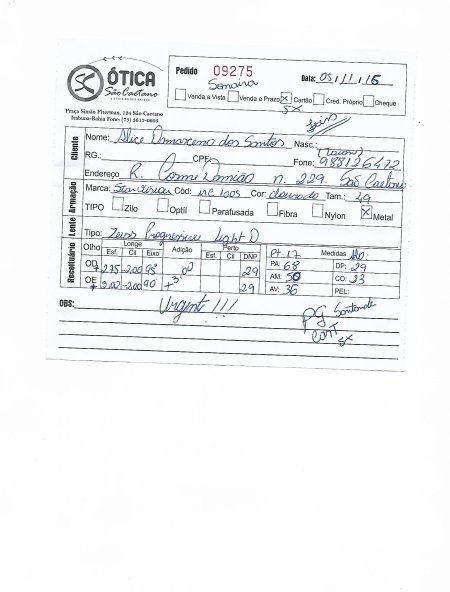 ÓTICA
São Caetano
Pedido 09275
Data: 05/1/16
Venda a Vista Venda a Prazo Cartão Créd. Próprio Cheque
5x
Praça Simão Fiterman, 124 São Caetano
Itabuna-Bahia Fone: (73)
Cliente
Nome: Alice Damasceno dos Santos Nasc.:
RG.: CPF: Fone: 988126472
Endereço R. Cosme Damião n. 229. São Caetano
Armação
Marca: Cód: MC 1005 Cor: dourado Tam.: 49
TIPO Zilo Optil Parafusada Fibra Nylon Metal
Lente
Tipo: Zeiss Progressive Light D
Receituário
Olho Longe Adição Perto Pt. 17 Medidas
Esf. Cil Eixo Esf. Cil DNP
OD +2.75 -2.00 95° +3.00 29 PA: 68 DP: 29
OE +2.00 -2.00 90° 29 AM: 50 CO: 33
AV: 36 PEL:
OBS: Urgente !!!
PG
CART
5x